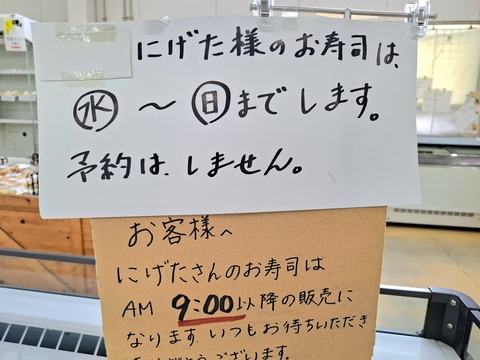 にげた様のお寿司は、
㊌〜㊐までします。
予約は、しません。
お客様へ
にげたさんのお寿司は
AM 9:00以降の販売に
なります。いつもお待ちいただき
ありがとうございます。